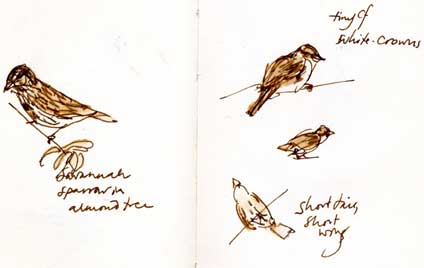 savannah
sparrow in
almond tree
tiny cf
white-crowns
short tail,
short
wing